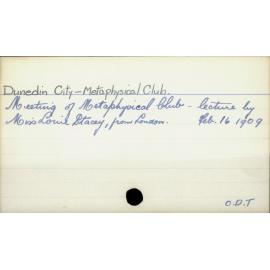 Dunedin City-Metaphysical Club.
Meeting of Metaphysical Club - lecture by
Miss Louie Stacey, from London. Feb. 16 1909
O.D.T